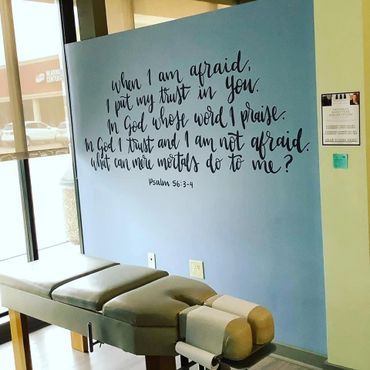 When I am afraid,
I put my trust in you.
In God whose word I praise.
In God I trust and I am not afraid.
What can mere mortals do to me?
Psalm 56:3-4